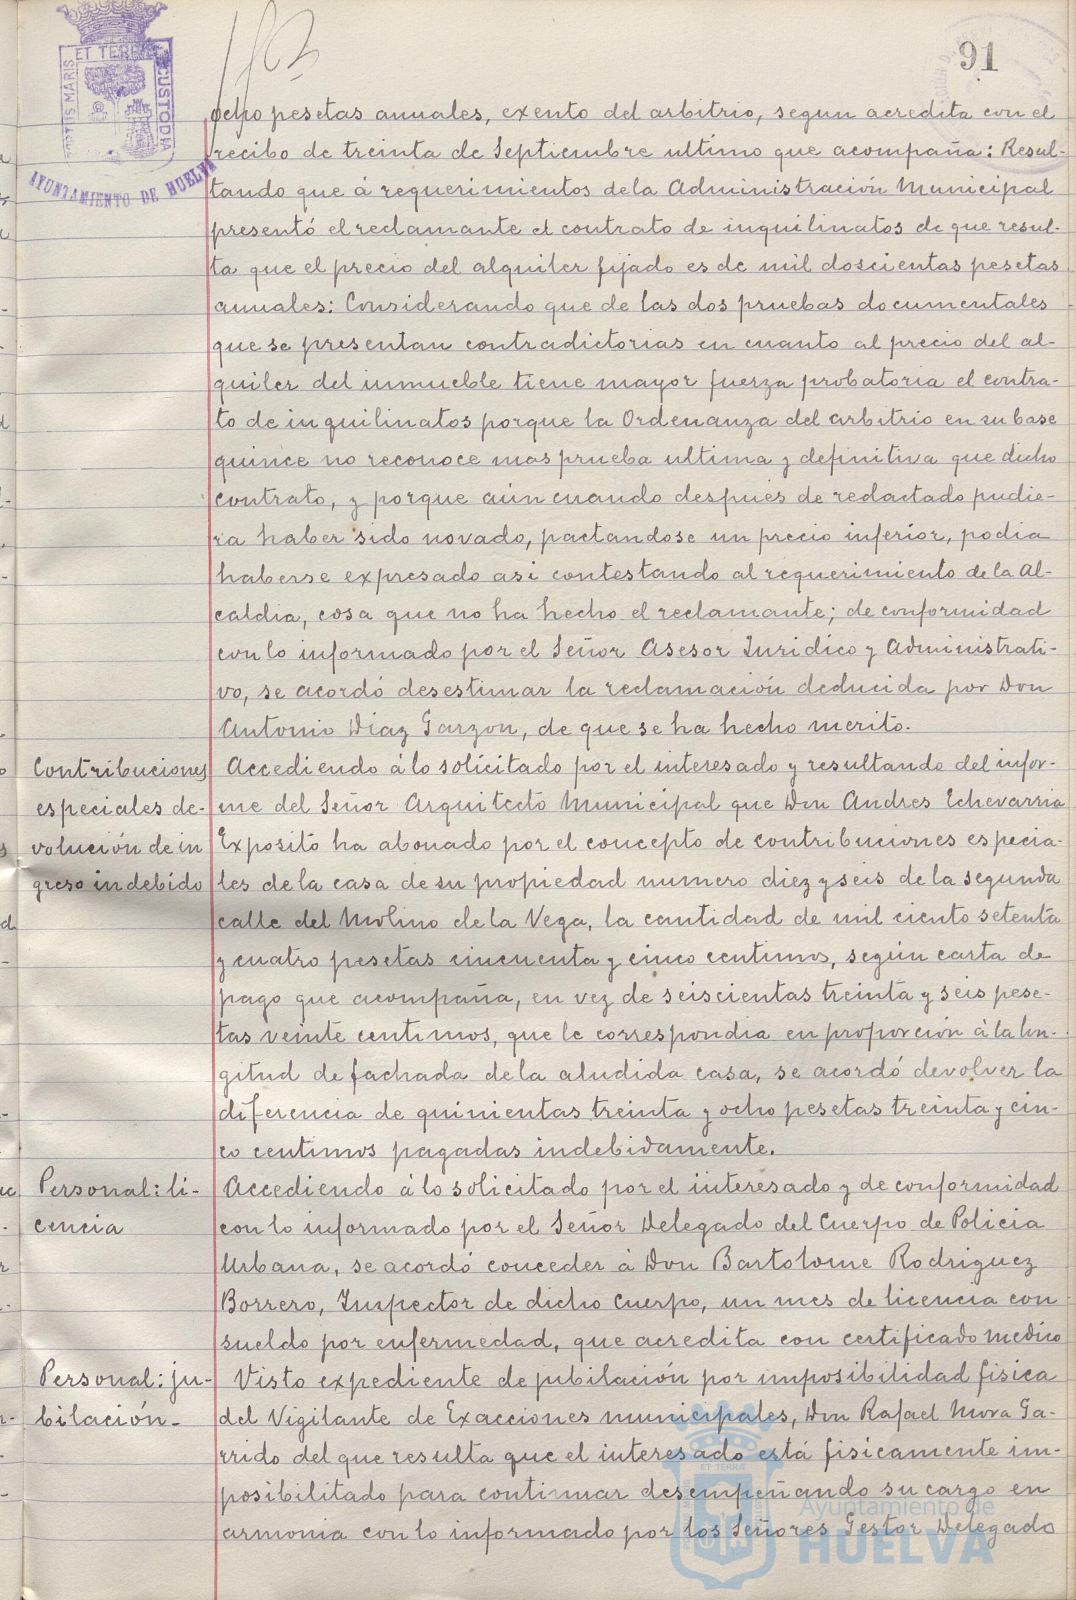 91
PORTUS MARIS ET TERRAE CUSTODIA
AYUNTAMIENTO DE HUELVA
ocho pesetas anuales, exento del arbitrio, segun acredita con el
recibo de treinta de Septiembre ultimo que acompaña: Resul-
tando que á requerimientos de la Administración Municipal
presentó el reclamante el contrato de inquilinatos de que resul-
ta que el precio del alquiler fijado es de mil doscientas pesetas
anuales: Considerando que de las dos pruebas documentales
que se presentan contradictorias en cuanto al precio del al-
quiler del inmueble tiene mayor fuerza probatoria el contra-
to de inquilinatos porque la Ordenanza del arbitrio en su base
quince no reconoce mas prueba ultima y definitiva que dicho
contrato, y porque aún cuando despues de redactado pudie-
ra haber sido novado, pactandose un precio inferior, podia
haberse expresado asi contestando al requerimiento de la Al-
caldia, cosa que no ha hecho el reclamante; de conformidad
con lo informado por el Señor Asesor Juridico y Administrati-
vo, se acordó desestimar la reclamación deducida por Don
Antonio Diaz Garzon, de que se ha hecho merito.
Contribuciones
especiales de-
volución de in
greso indebido
Accediendo á lo solicitado por el interesado y resultando del infor-
me del Señor Arquitecto Municipal que Don Andres Echevarria
Exposito ha abonado por el concepto de contribuciones especia-
les de la casa de su propiedad numero diez y seis de la segunda
calle del Molino de la Vega, la cantidad de mil ciento setenta
y cuatro pesetas cincuenta y cinco centimos, según carta de
pago que acompaña, en vez de seiscientas treinta y seis pese-
tas veinte centimos, que le correspondia en proporción á la lon-
gitud de fachada de la aludida casa, se acordó devolver la
diferencia de quinientas treinta y ocho pesetas treinta y cin-
co centimos pagadas indebidamente.
Personal: li-
cencia
Accediendo á lo solicitado por el interesado y de conformidad
con lo informado por el Señor Delegado del Cuerpo de Policia
Urbana, se acordó conceder á Don Bartolome Rodriguez
Borrero, Inspector de dicho Cuerpo, un mes de licencia con
sueldo por enfermedad, que acredita con certificado medico
Personal: ju-
bilación-
Visto expediente de jubilación por imposibilidad fisica
del Vigilante de Exacciones municipales, Don Rafael Mora Ga-
rrido del que resulta que el interesado está fisicamente im-
posibilitado para continuar desempeñando su cargo en
armonia con lo informado por los Señores Gestor Delegado
Ayuntamiento de
HUELVA